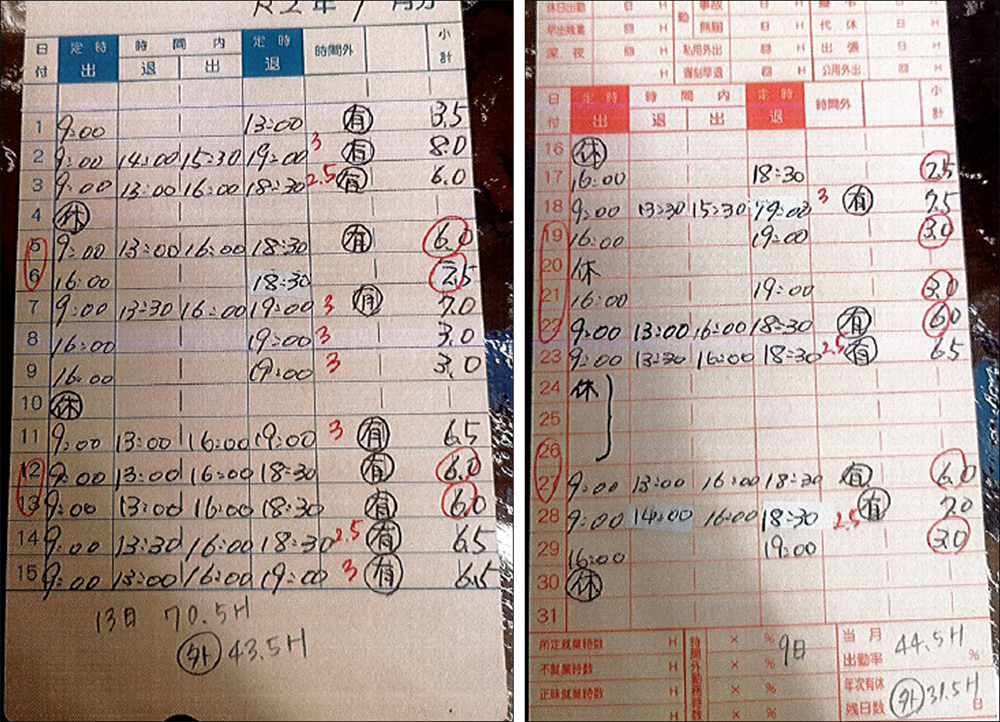 R2年
日付 定時 出 時間内 退 出 定時 退 時間外 小計
1 9:00 13:00 有 3.5
2 9:00 14:00 15:30 19:00 3 有 8.0
3 9:00 13:00 16:00 18:30 2.5 有 6.0
4 休
5 9:00 13:00 16:00 18:30 有 6.0
6 16:00 18:30 2.5
7 9:00 13:30 16:00 19:00 3 有 7.0
8 16:00 19:00 3 3.0
9 16:00 19:00 3 3.0
10 休
11 9:00 13:00 16:00 19:00 3 有 6.5
12 9:00 13:00 16:00 18:30 有 6.0
13 9:00 13:00 16:00 18:30 有 6.0
14 9:00 13:30 16:00 18:30 2.5 有 6.5
15 9:00 13:00 16:00 19:00 3 有 6.5
13日 70.5H
外 43.5H
休日出勤 回 H 勤 事故 日 H 慶弔 日 H
早出残業 回 H 無届 日 H 代休 日 H
深夜 回 H 私用外出 回 H 出張 日 H
遅刻早退 回 H 公用外出 回 H
日付 定時 出 時間内 退 出 定時 退 時間外 小計
16 休
17 16:00 18:30 2.5
18 9:00 13:30 15:30 19:00 3 有 7.5
19 16:00 19:00 3.0
20 休
21 16:00 19:00 3.0
22 9:00 13:00 16:00 18:30 有 6.0
23 9:00 13:30 16:00 18:30 2.5 有 6.5
24 休
25
26
27 9:00 13:00 16:00 18:30 有 6.0
28 9:00 14:00 16:00 18:30 2.5 有 7.0
29 16:00 19:00 3.0
30 休
31
所定就業時数 H 時間外勤務時数 × % 9日 当月出勤率 44.5H %
不就業時数 H × %
正味就業時数 H × % 年次有休残日数 外 31.5H 日